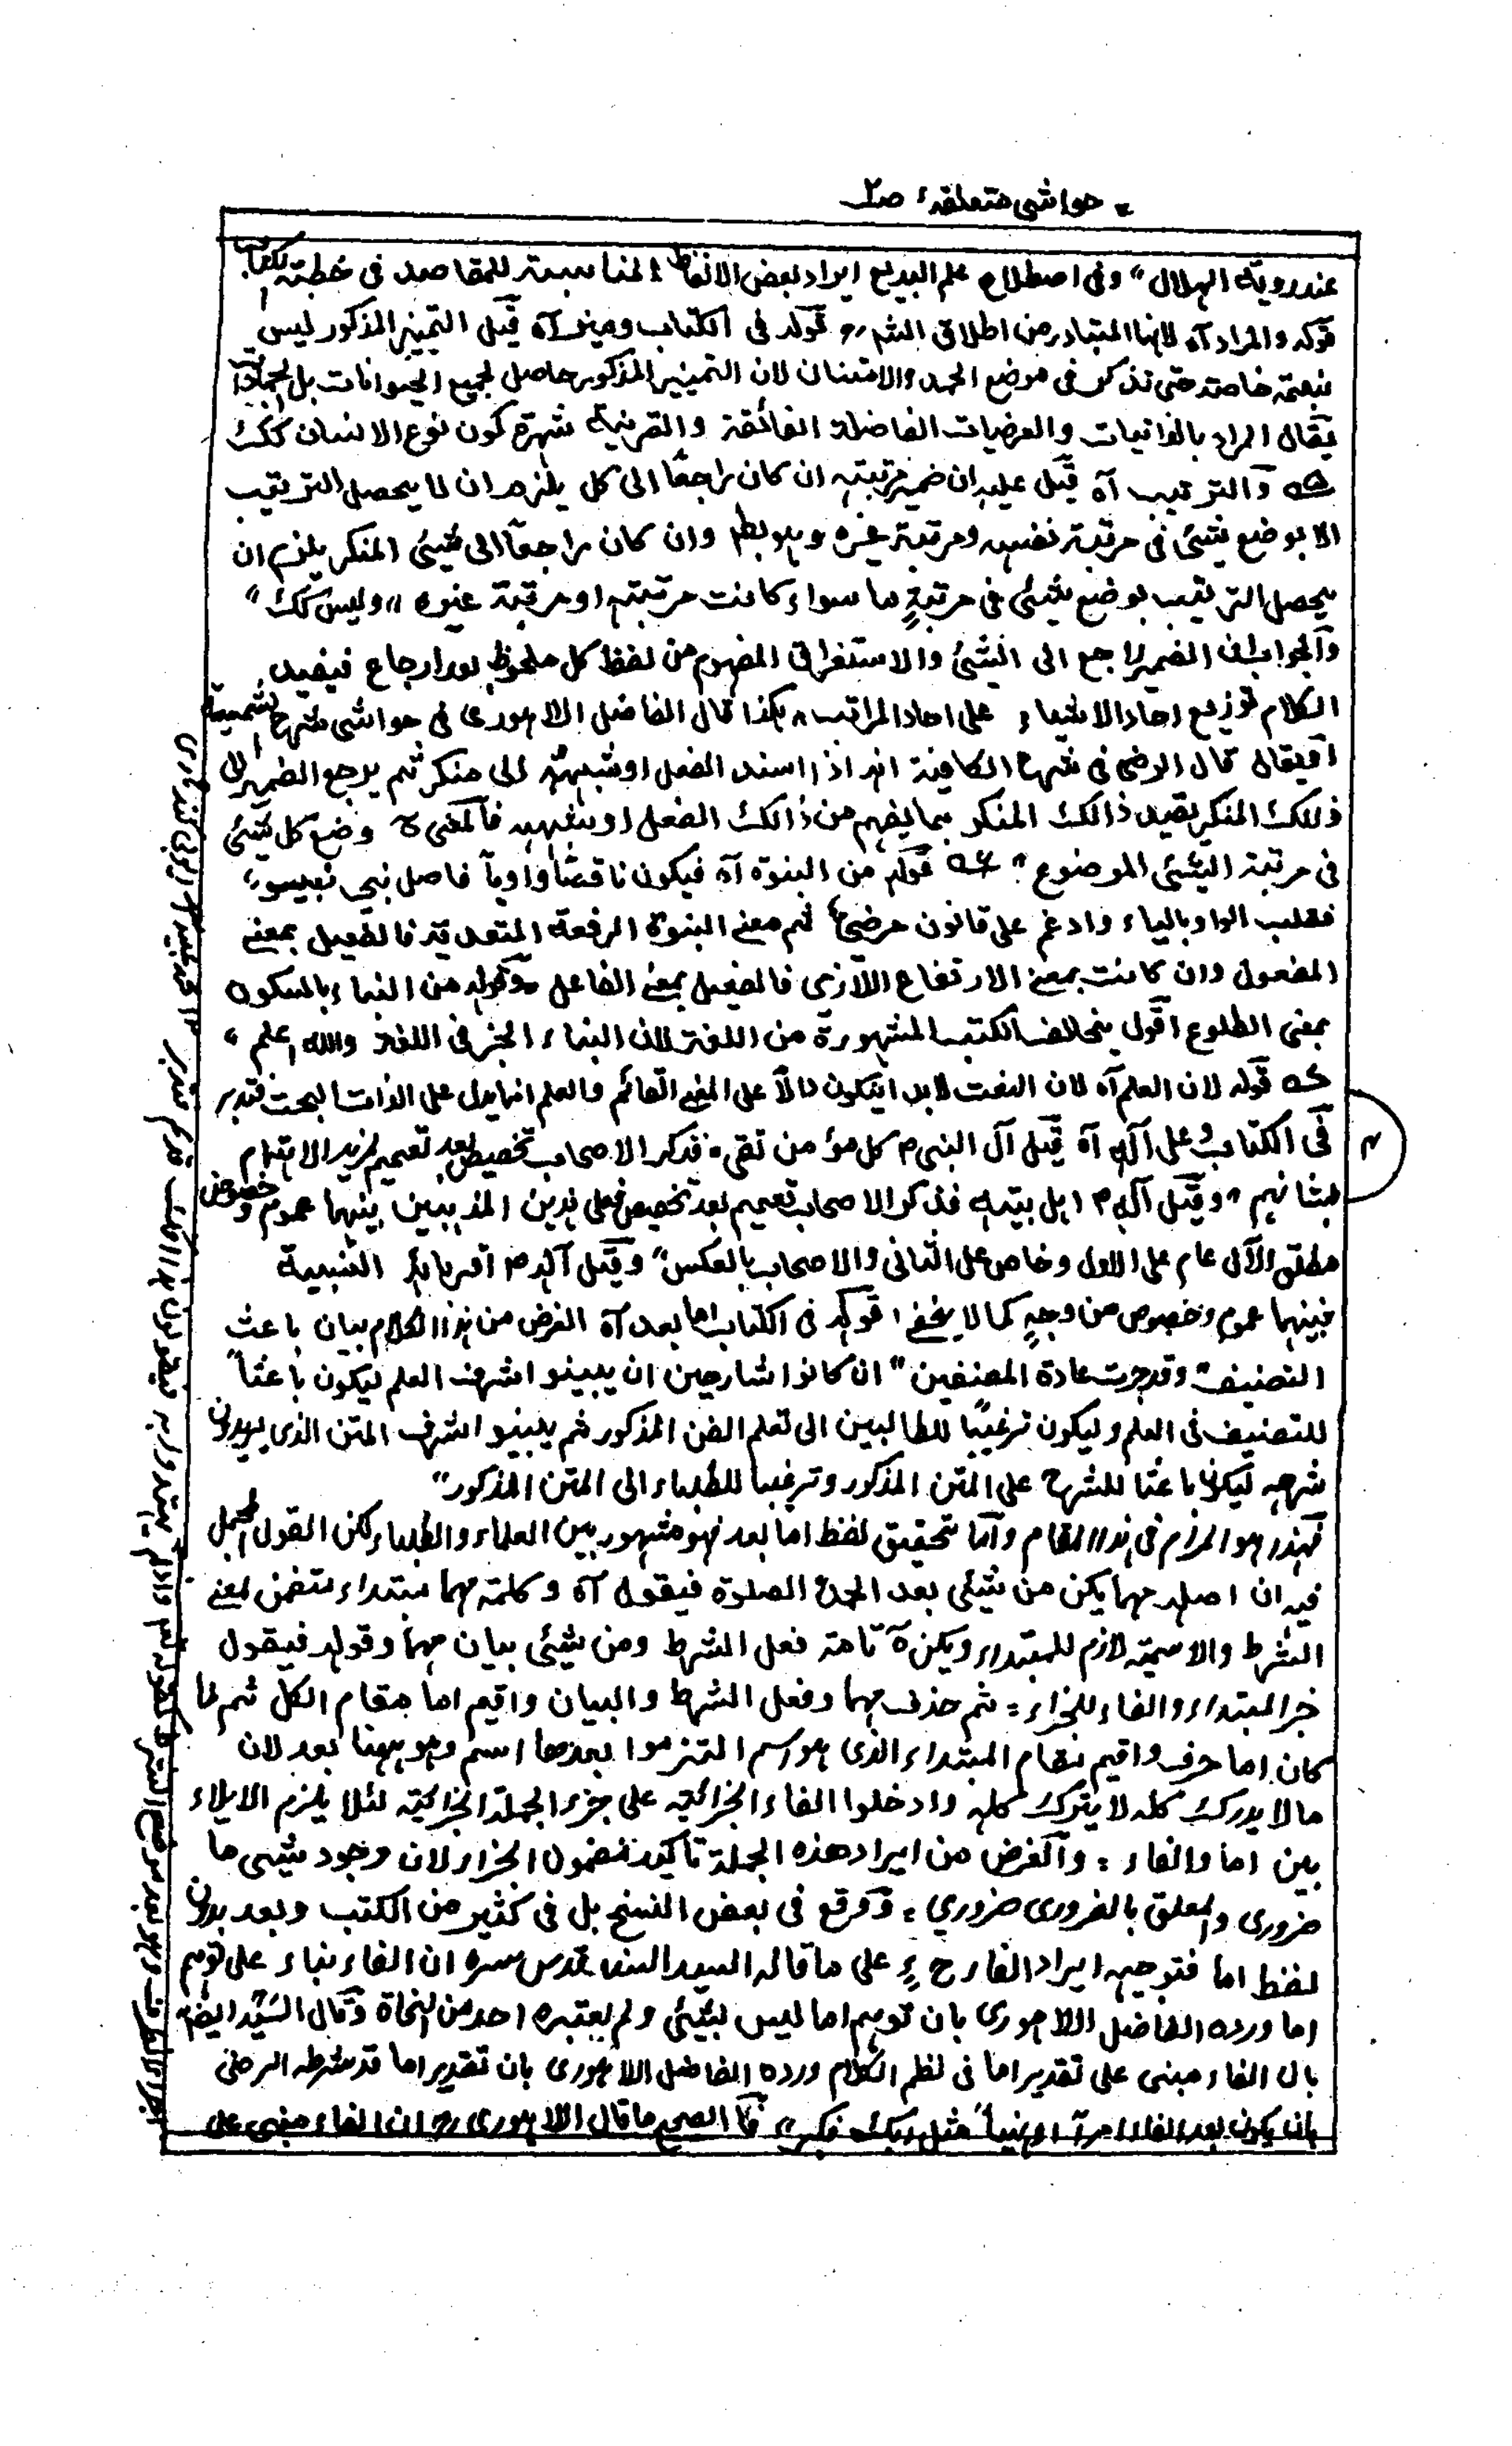 حواشی متعلقہٴ ص۲
عند روية الهلال" وفی اصطلاح علم البديع ايراد بعض الالفاظ المناسبة للمقاصد فی خطبة الكتاب
قوله والمراد آه لانها المتبادر من اطلاق الشیء قوله فی الكتاب وميز آه قيل التمييز المذكور ليس
بنعمة خاصة حتى تذكر فی موضع الحمد والامتنان لان التمييز المذكور حاصل لجميع الحيوانات بل الجمادات
يقال المراد بالذاتيات والعرضيات الفاضلة الفائقة والقرينة شهرة كون نوع الانسان كذلك
والترتيب آه قيل عليه ان ضمير مرتبته ان كان راجعًا الى كل يلزم ان لا يحصل الترتيب
الا بوضع شیئ فی مرتبة نفسه ومرتبة غيره وهو بطا وان كان راجعًا الى شیئ المنكر يلزم ان
يحصل الترتيب بوضع شیئ فی مرتبةٍ ما سواء كانت مرتبته او مرتبة غيره "وليس كذلك"
والجواب ان الضمير راجع الى الشیئ والاستغراق المفهوم من لفظ كل ملحوظ بعد ارجاع فيفيد
الكلام توزيع احاد الاشياء على احاد المراتب هكذا قال الفاضل اللاهوری فی حواشی شرح الشمسية
او يقال قال الرضی فی شرح الكافية انه اذا اسند الفعل او شبهه الى منكر ثم يرجع الضمير الى
ذلك المنكر يقيد ذالك المنكر بما يفهم من ذالك الفعل او شبهه فالمعنى ح وضع كل شیئ
فی مرتبة الشیئ الموضوع" قوله من النبوة آه فيكون ناقصًا واويًا فاصل نبی نبيو
فقلب الواو بالياء وادغم على قانون مرضیٌّ ثم معنى النبوة الرفعة المتعدية فالفعيل بمعنى
المفعول وان كانت بمعنى الارتفاع اللازمی فالفعيل بمعنى الفاعل وقوله من النباء بالسكون
بمعنى الطلوع اقول يخالف الكتب المشهورة من اللغة لان النباء الخبر فی اللغة والله اعلم"
قوله لان العلم آه لان النعت لابد ان يكون دالاً على المعنى القائم والعلم انما يدل على الذات البحت فتدبر
فی الكتاب وعلى آله آه قيل آل النبی م كل مؤمن تقی، فذكر الاصحاب تخصيص بعد تعميم لمزيد الاهتمام
بشانهم" وقيل آله م اهل بيته فذكر الاصحاب تعميم بعد تخصيص فعلى هذين المذهبين بينهما عموم وخصوص
مطلق الآل عام على الاول وخاص على الثانی والاصحاب بالعكس" وقيل آله م اقرباؤه النسبية
فبينهما عموم وخصوص من وجهٍ كما لا يخفى قوله فی الكتاب اما بعد آه الغرض من هذا الكلام بيان باعث
التصنيف" وقد جرت عادة المصنفين" ان كانوا شارحين ان يبينوا شرف العلم ليكون باعثاً
للتصنيف فی العلم وليكون ترغيبًا للطالبين الى تعلم الفن المذكور ثم يبينو اشرف المتن الذی يريدون
شرحه ليكون باعثا للشرح على المتن المذكور وترغيبا للطلباء الى المتن المذكور"
فهذا هو المرام فی هذا المقام واما تحقيق لفظ اما بعد فهو مشهور بين العلماء والطلباء لكن القول المجمل
فيه ان اصله مهما يكن من شیئ بعد الحمد والصلوة فيقول آه وكلمة مهما مبتداء متضمن لمعنى
الشرط والاسمية لازم للمبتداء ويكن تامة فعل الشرط ومن شیئ بيان مهما وقوله فيقول
خبر المبتداء والفاء للجزاء؛ ثم حذف مهما وفعل الشرط والبيان واقيم اما مقام الكل ثم لما
كان اما حرف واقيم مقام المبتداء الذی هو اسم التزموا بعدها اسم وهو ههنا بعد لان
مالا يدرك كله لا يترك كله وادخلوا الفاء الجزائية على جزء الجملة الجزائية لئلا يلزم الايلاء
بين اما والفاء؛ والغرض من ايراد هذه الجملة تاكيد مضمون الجزاء لان وجود شیئ ما
ضروری والمعلق بالضروری ضروري؛ ووقع فی بعض النسخ بل فی كثير من الكتب وبعد بدون
لفظ اما فتوجيه ايراد الفاء ح على ما قاله السيد السند قدس سره ان الفاء بناء على توهم
اما ورده الفاضل اللاهوری بان توهم اما ليس بشیئ ولم يعتبره احد من النحاة وقال السيد ايضًا
بان الفاء مبنی على تقدير اما فی نظم الكلام ورده الفاضل اللاهوری بان تقدير اما قد شرطه الرضی
بان يكون بعد الفاء امرًا او نهياً مثل وربك فكبر" فالصحيح ما قال اللاهوری رح ان الفاء مبنی على